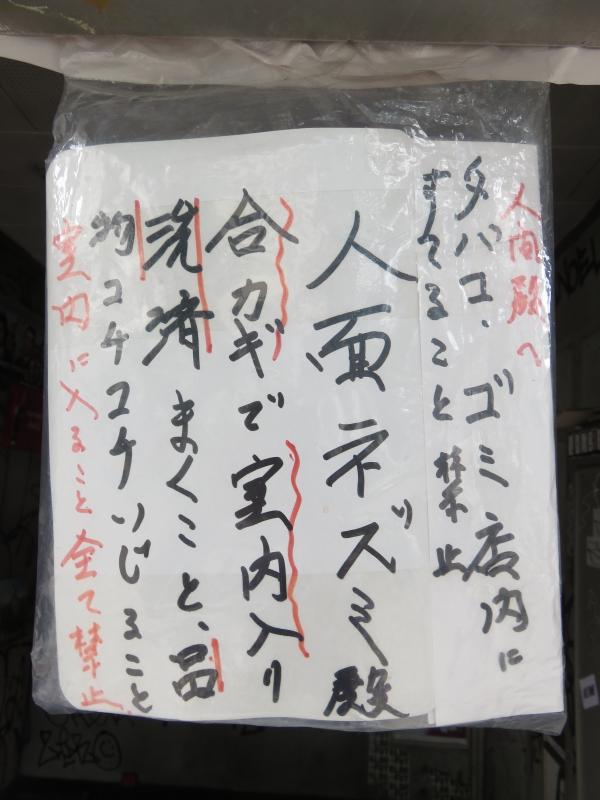 人間殿へ
タバコ、ゴミ店内に
すてること禁止
人面ネズミ殿
合カギで室内入り
洗済まくこと、品
物コチコチいじること
室内に入ること全て禁止